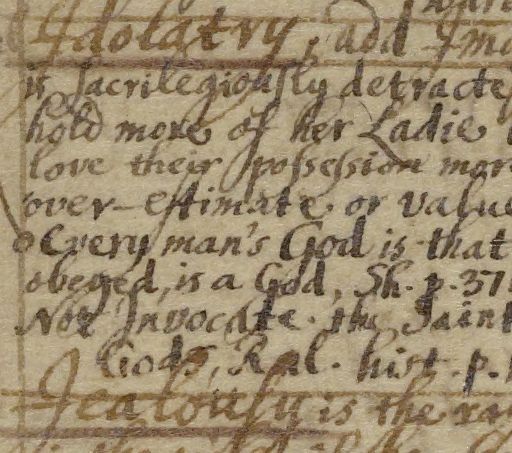 Idolatry, add Im
is sacrilegiously detracte
hold more of her Ladie
love their possession mor
over-estimate or value
Every man's God is that
obeyed, is a God, Sh. p. 37
Not Invocate the Saint
Gods, Ral. hist. p.
Jealousy is the ra